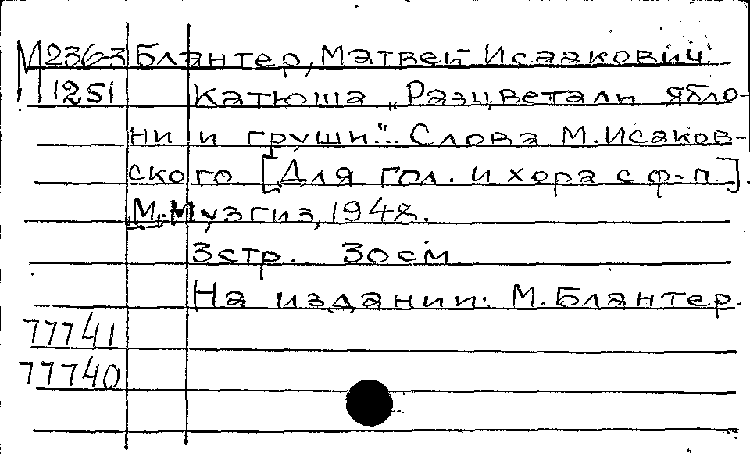 М2363 Блантер, Матвей Исаакович
1251 Катюша „Расцветали ябло-
ни и груши"... Слова М.Исаков-
ского [Для гол. и хора с ф-п.].
М., Музгиз, 1948.
3 стр. 30 см
На издании: М.Блантер.
77741
77740